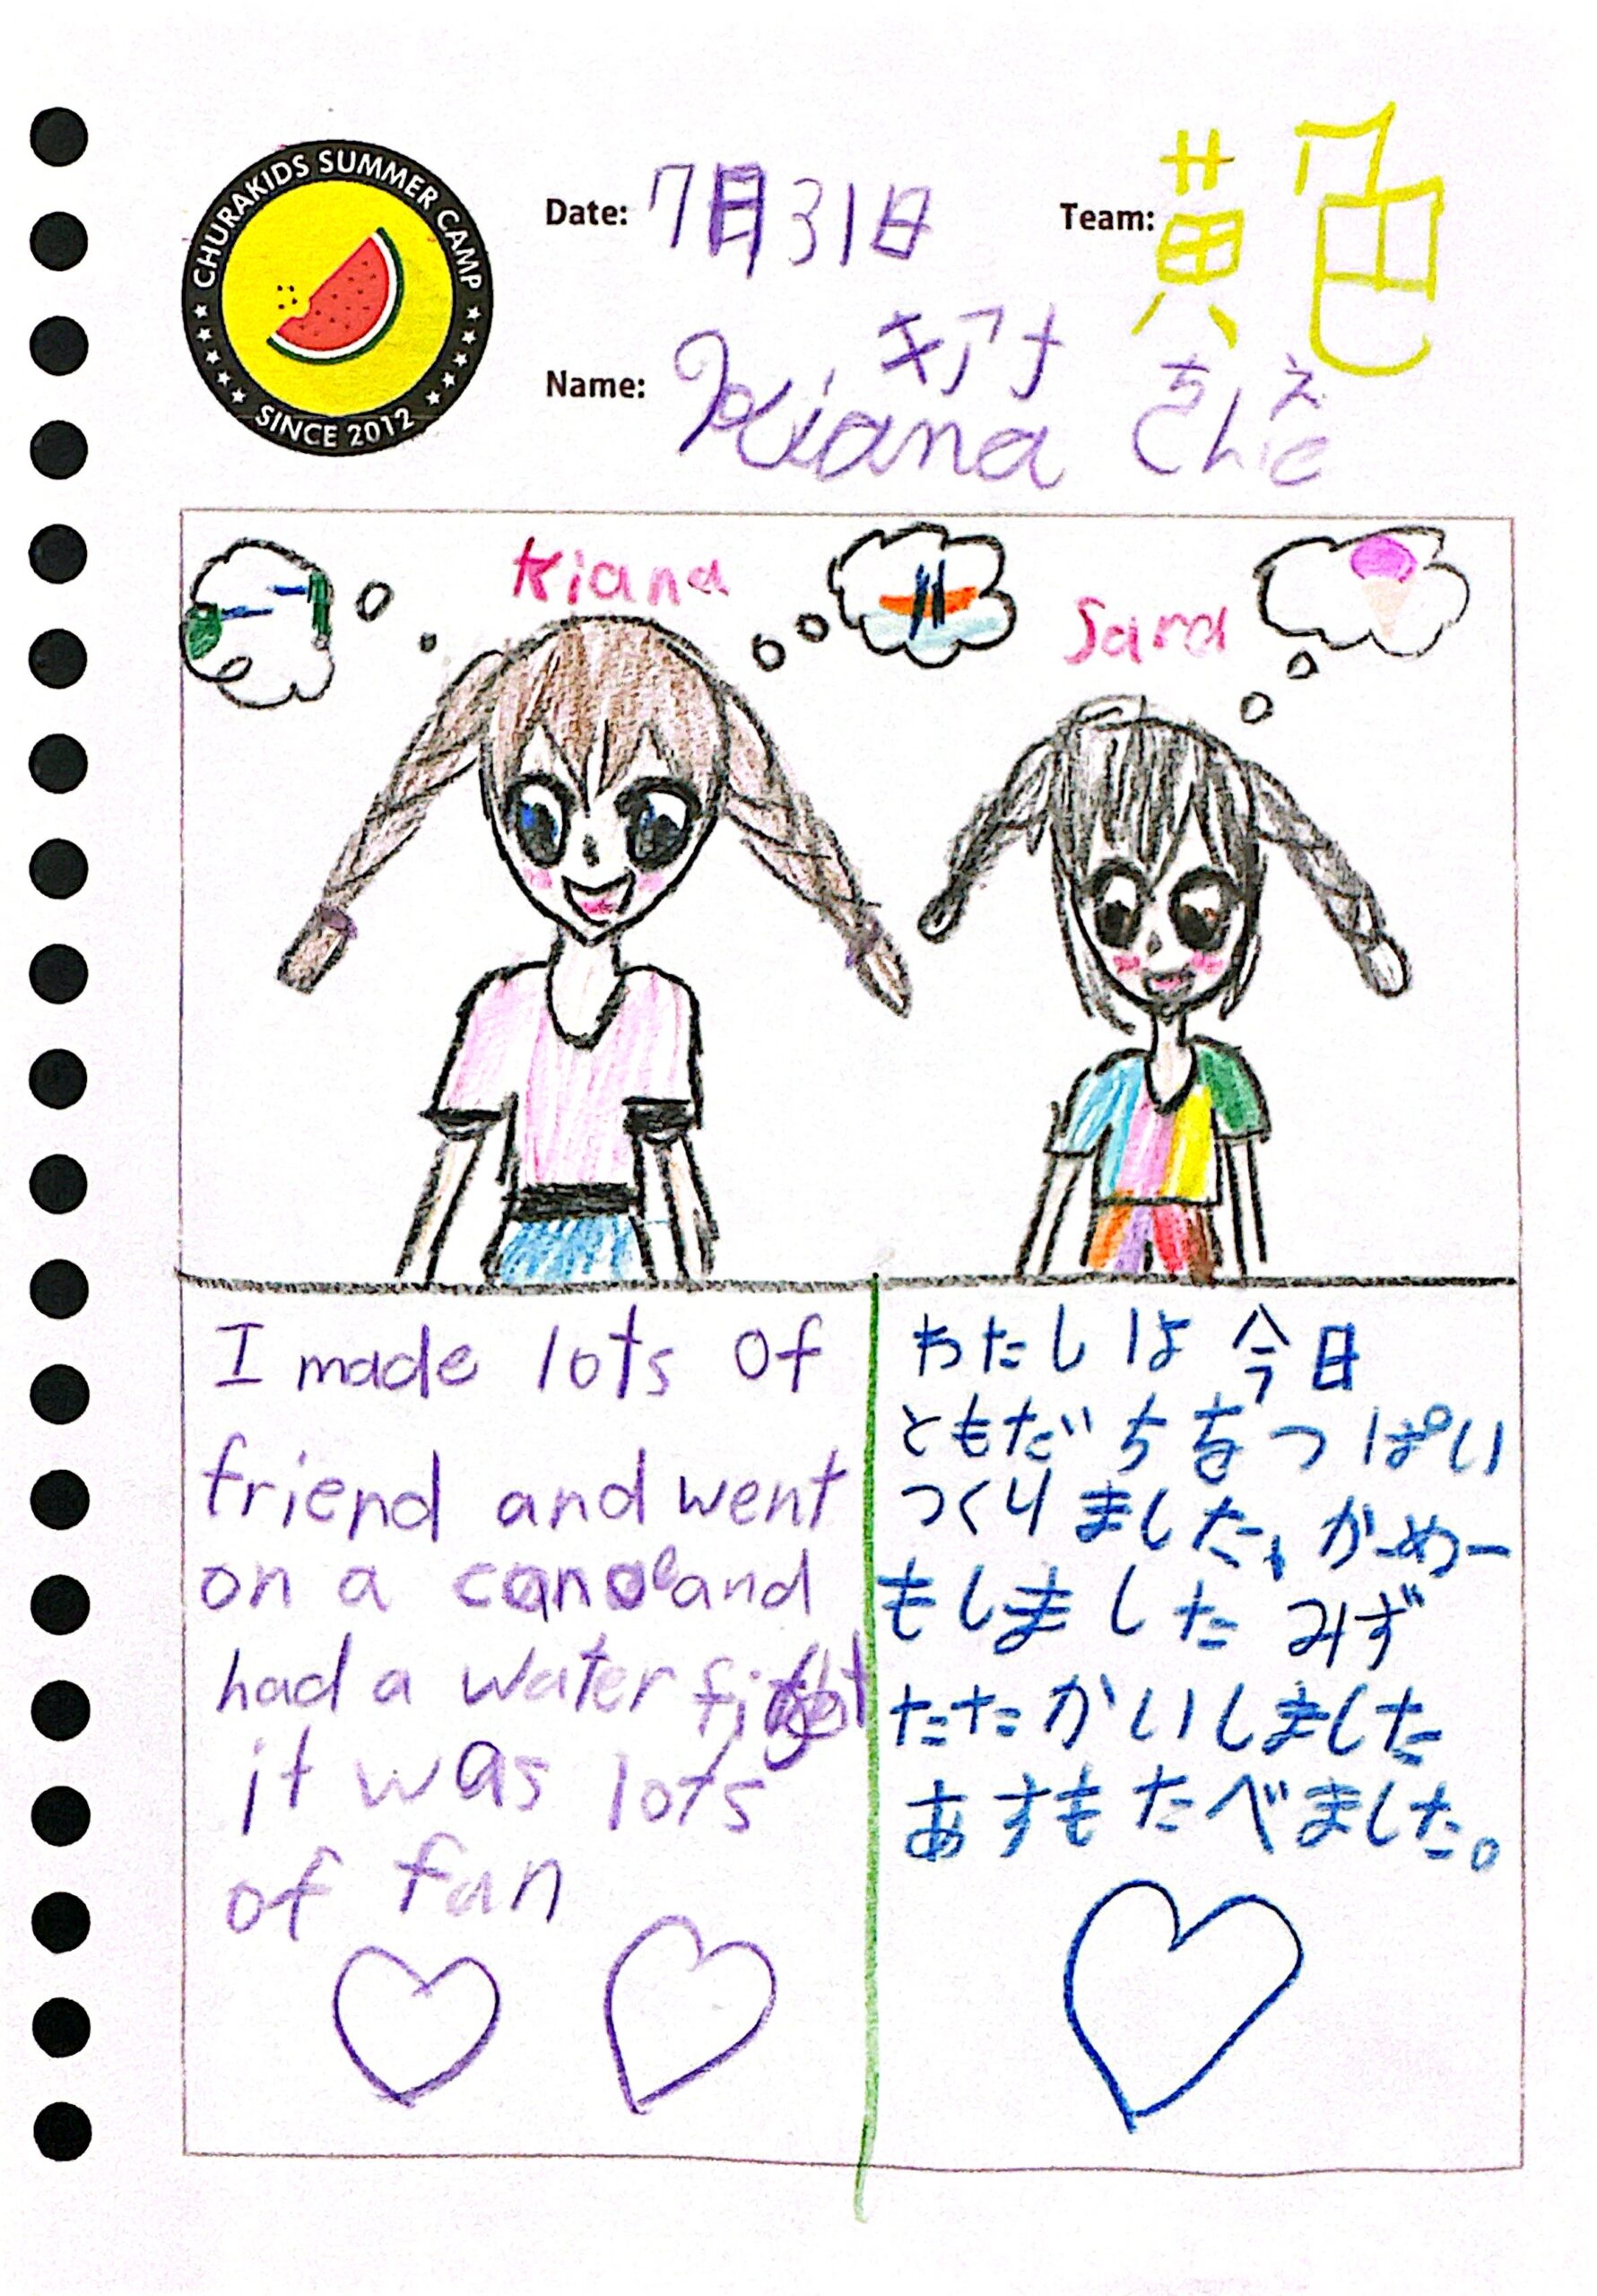 CHURAKIDS SUMMER CAMP
SINCE 2012
Date: 7月31日
Team: 黄色
キアナ ちえ
Name: Kiana Chie
Kiana
Sara
I made lots of
friend and went
on a canoe and
had a water fight
it was lots
of fun
わたしは今日
ともだちをつぱい
つくりました、かーめー
もしました みず
たたかいしました
あすもたべました。